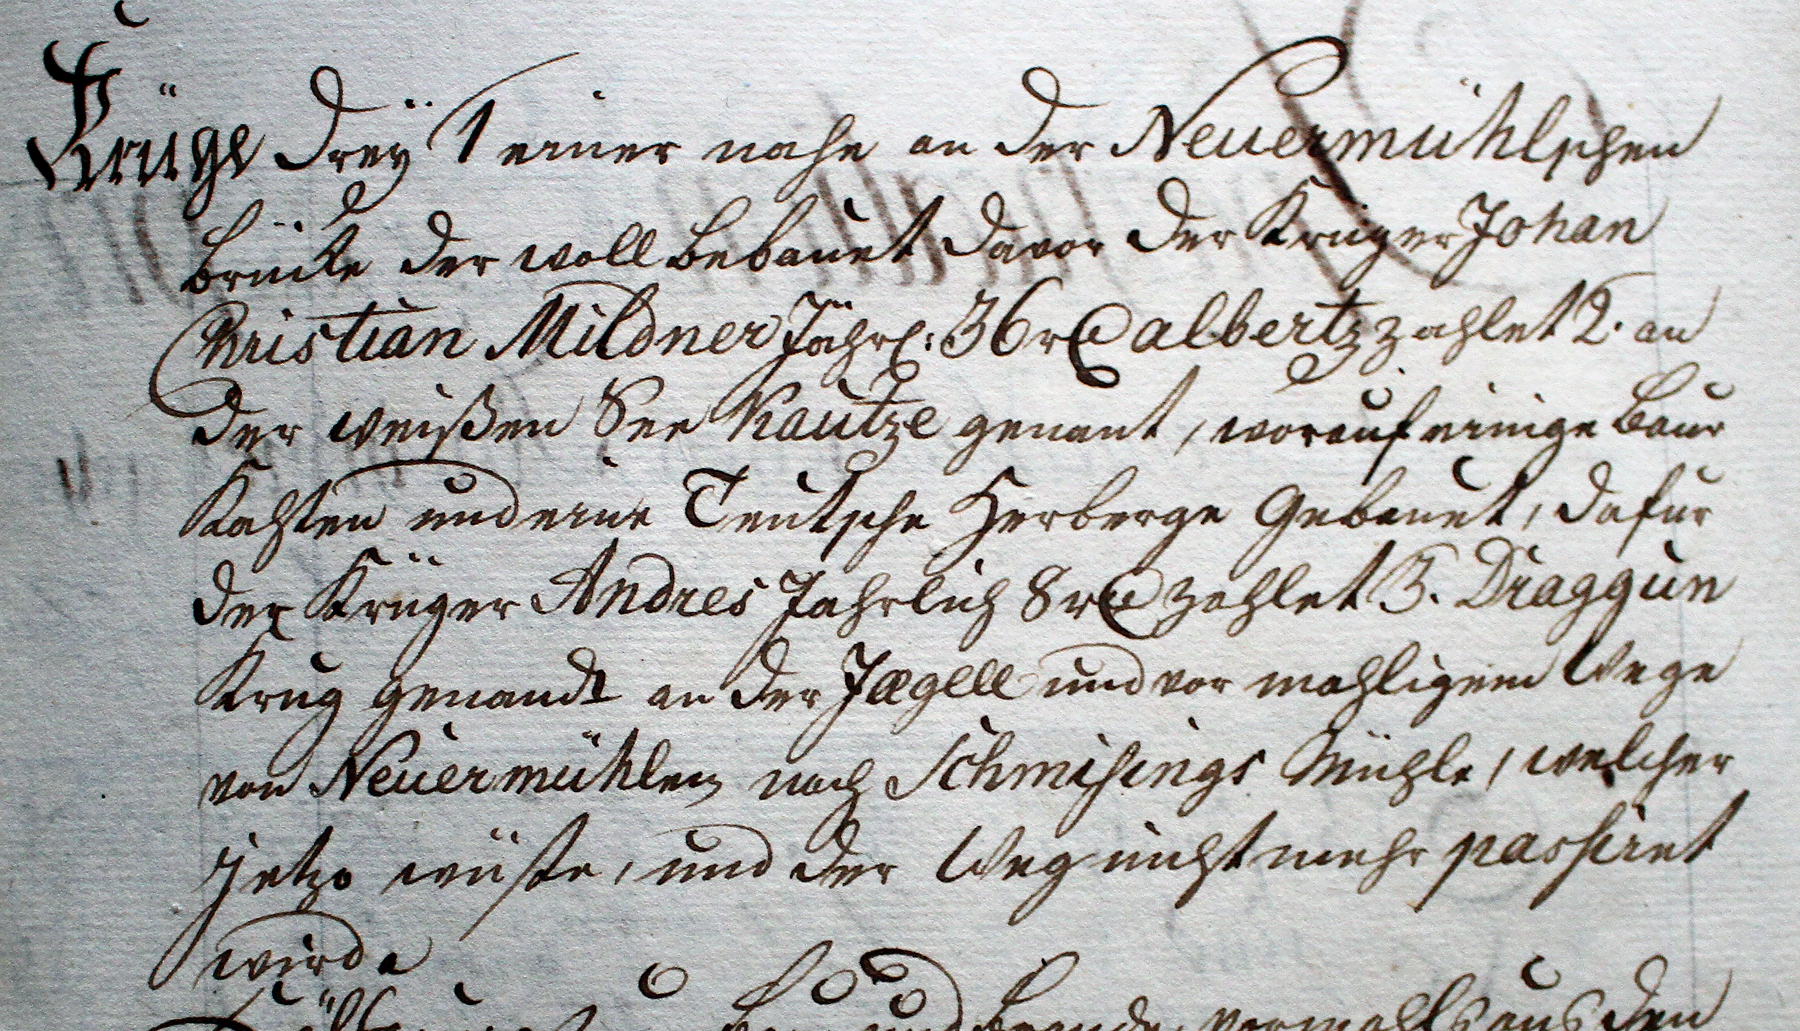 Krüge Dreÿ 1 einer nahe an der Neuermühlschen
brücke der woll bebauet davor der Krüger Johan
Christian Mildner Jährl: 36 r albertz zahlet 2. an
der weißen See Kautze genant, worauf einige baur
Kahsten und eine Teutsche Herberge Gebauet, dafur
der Krüger Andres Jahrlich 8 r zahlet 3. Draggun
Krug genandt an der Jægell und vor mahligem Wege
von Neuermühlen nach Schmisings Mühle, welcher
jetzo wüste, und der Weg nicht mehr passiret
wirde
und vormahls aus den